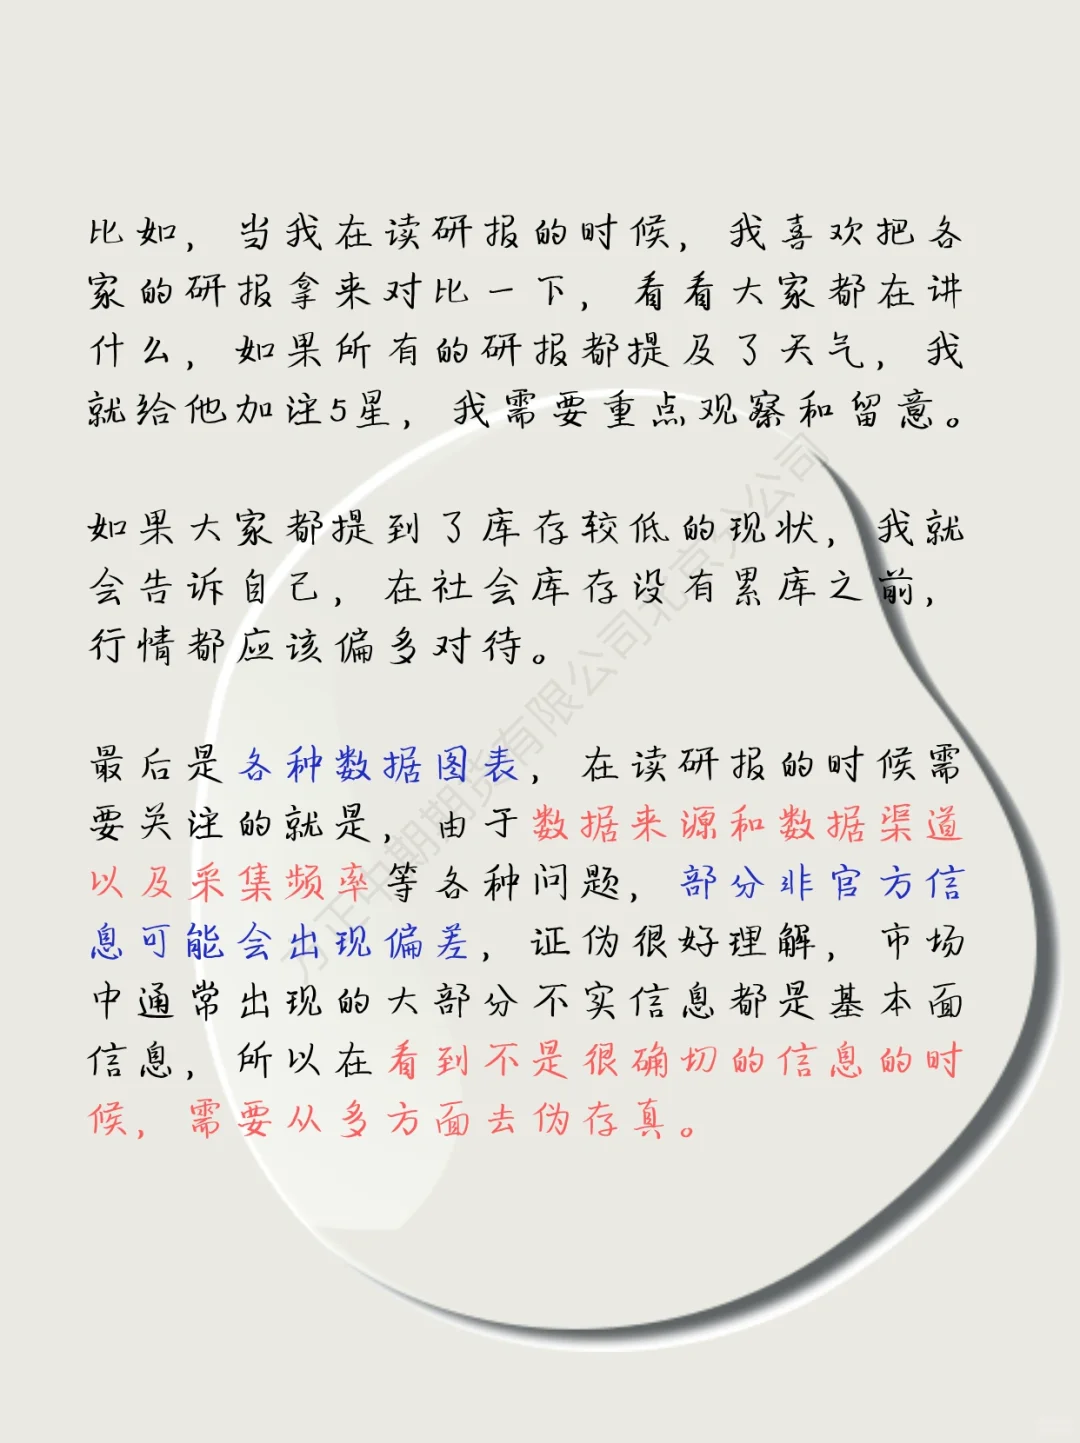 比如，当我在读研报的时候，我喜欢把各
家的研报拿来对比一下，看看大家都在讲
什么，如果所有的研报都提及了天气，我
就给他加注5星，我需要重点观察和留意。
如果大家都提到了库存较低的现状，我就
会告诉自己，在社会库存没有累库之前，
行情都应该偏多对待。
最后是各种数据图表，在读研报的时候需
要关注的就是，由于数据来源和数据渠道
以及采集频率等各种问题，部分非官方信
息可能会出现偏差，证伪很好理解，市场
中通常出现的大部分不实信息都是基本面
信息，所以在看到不是很确切的信息的时
候，需要从多方面去伪存真。
方正中期期货有限公司北京分公司